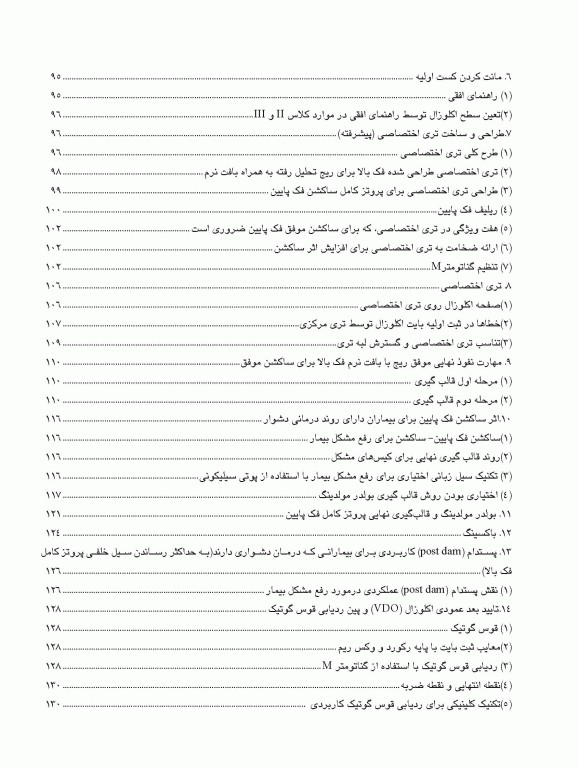 ۶. مانت کردن کست اولیه ........ ۹۵
(۱) راهنمای افقی ........ ۹۵
(۲)تعین سطح اکلوزال توسط راهنمای افقی در موارد کلاس II و III ........ ۹۶
۷.طراحی و ساخت تری اختصاصی (پیشرفته) ........ ۹۶
(۱) طرح کلی تری اختصاصی ........ ۹۶
(۲) تری اختصاصی طراحی شده فک بالا برای ریج تحلیل رفته به همراه بافت نرم ........ ۹۸
(۳) طراحی تری اختصاصی برای پروتز کامل ساکشن فک پایین ........ ۹۹
(۴) ریلیف فک پایین ........ ۱۰۰
(۵) هفت ویژگی در تری اختصاصی، که برای ساکشن موفق فک پایین ضروری است ........ ۱۰۲
(۶) ارائه ضخامت به تری اختصاصی برای افزایش اثر ساکشن ........ ۱۰۲
(۷) تنظیم گناتومترM ........ ۱۰۲
۸. تری اختصاصی ........ ۱۰۶
(۱)صفحه اکلوزال روی تری اختصاصی ........ ۱۰۶
(۲)خطاها در ثبت اولیه بایت اکلوزال توسط تری مرکزی ........ ۱۰۷
(۳)تناسب تری اختصاصی و گسترش لبه تری ........ ۱۰۹
۹. مهارت نفوذ نهایی موفق ریج با بافت نرم فک بالا برای ساکشن موفق ........ ۱۱۰
(۱) مرحله اول قالب گیری ........ ۱۱۰
(۲) مرحله دوم قالب گیری ........ ۱۱۰
۱۰.اثر ساکشن فک پایین برای بیماران دارای روند درمانی دشوار ........ ۱۱۶
(۱)ساکشن فک پایین– ساکشن برای رفع مشکل بیمار ........ ۱۱۶
(۲)روند قالب گیری نهایی برای کیس‌های مشکل ........ ۱۱۶
(۳) تکنیک سیل زبانی اختیاری برای رفع مشکل بیمار با استفاده از پوتی سیلیکونی ........ ۱۱۶
(۴) اختیاری بودن روش قالب گیری بولدر مولدینگ ........ ۱۱۷
۱۱. بولدر مولدینگ و قالب‌گیری نهایی پروتز کامل فک پایین ........ ۱۲۱
۱۲. باکسینگ ........ ۱۲۴
۱۳. پستدام (post dam) کاربردی برای بیمارانی که درمان دشواری دارند(به حداکثر رساندن سیل خلفی پروتز کامل
فک بالا) ........ ۱۲۶
(۱) نقش پستدام (post dam) عملکردی درمورد رفع مشکل بیمار ........ ۱۲۶
۱۴.تایید بعد عمودی اکلوزال (VDO) و پین ردیابی قوس گوتیک ........ ۱۲۸
(۱) قوس گوتیک ........ ۱۲۸
(۲)معایب ثبت بایت با پایه رکورد و وکس ریم ........ ۱۲۸
(۳) ردیابی قوس گوتیک با استفاده از گناتومتر M ........ ۱۲۸
(۴)نقطه انتهایی و نقطه ضربه ........ ۱۳۰
(۵)تکنیک کلینیکی برای ردیابی قوس گوتیک کاربردی ........ ۱۳۰